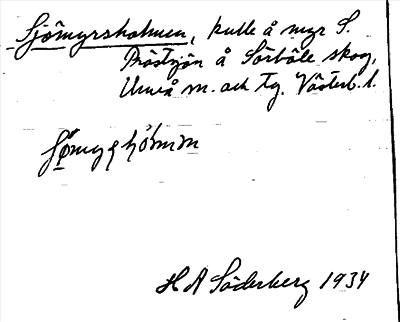 Sjömyrsholmen, kulle å myr S.
Prästsjön å Sörböle skog,
Umeå m. och tg. Västerb. l.
H A Söderberg 1934